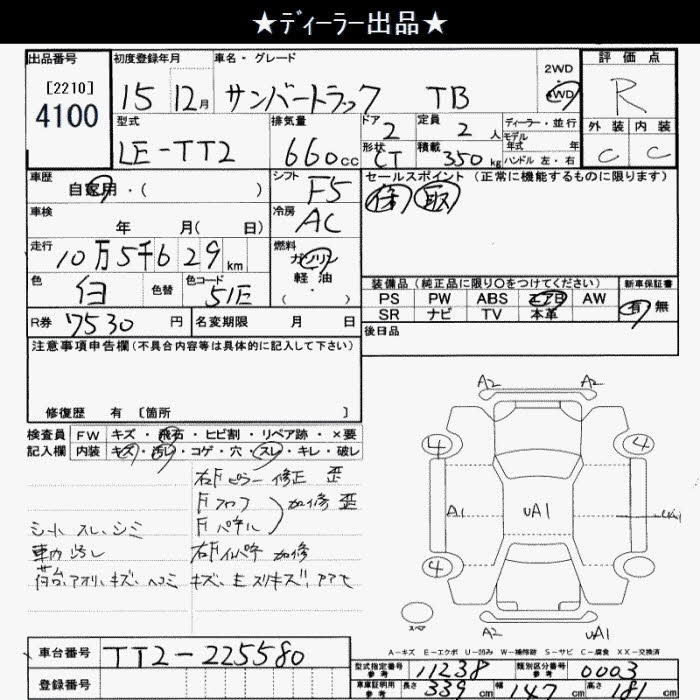 ★ディーラー出品★
出品番号
[2210]
4100
初度登録年月
15年12月
車名・グレード
サンバートラック TB
2WD
4WD
評価点
R
外装 内装
C C
型式
LE-TT2
排気量
660cc
ドア
2
形状
CT
定員
2人
積載
350kg
ディーラー・並行
モデル年式 年
ハンドル 左・右
車歴
自家用・( )
シフト
F5
セールスポイント(正常に機能するものに限ります)
保 取
車検
年 月( 日)
冷房
AC
走行
10万5千629km
燃料
ガソリン
軽油
( ・ )
色
白
色替
色コード
51E
装備品(純正品に限り○をつけてください)
新車保証書
PS PW ABS エアB AW
有・無
SR ナビ TV 本革
R券 7530円
名変期限 月 日
後日品
注意事項申告欄(不具合内容等は具体的に記入して下さい)
修復歴 有 [箇所 ]
検査員記入欄
FW キズ・飛石・ヒビ割・リペア跡・×要
内装 キズ・汚レ・コゲ・穴・スレ・キレ・破レ
右Fピラー 修正 歪
加修 歪
シート スレ、シミ
車内 汚レ
加修
A2 A2
4 4
A1 uA1 uA1
4
A2 uA1
スペア
A-キズ E-エクボ U-凹み W-補修跡 S-サビ C-腐食 XX-交換済
車台番号
TT2-225580
登録番号
型式指定番号
参考
11238
類別区分番号
参考
0003
車庫証明用
参考
長さ 339cm 幅 147cm 高さ 181cm